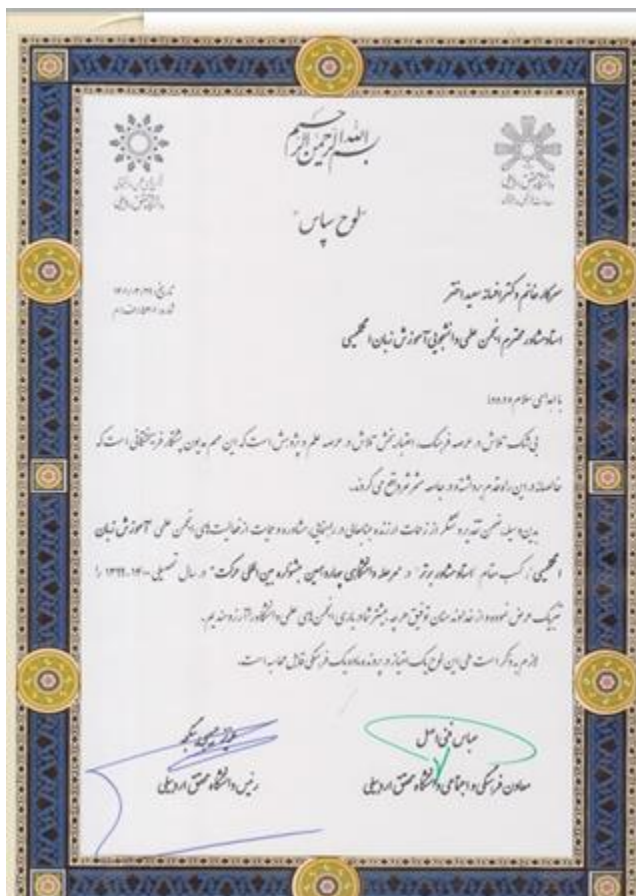 بسم الله الرحمن الرحیم
دانشگاه محقق اردبیلی
دانشگاه محقق اردبیلی
"لوح سپاس"
سرکار خانم دکتر افسانه سعید اختر
تاریخ:
شماره:
استاد مشاور محترم انجمن علمی دانشجویی آموزش زبان انگلیسی
با اهدای سلام و درود؛
بی شک تلاش در عرصه فرهنگ، اعتبار بخش تلاش در عرصه علم و پژوهش است که این مهم بدون پشتکار فرهیختگانی است که
خالصانه در این راه قدم برداشته و در جامعه مثمر ثمر واقع می گردند.
بدین وسیله ضمن تقدیر و تشکر از زحمات ارزنده جنابعالی در راهنمایی، مشاوره و حمایت از فعالیت های انجمن علمی آموزش زبان
انگلیسی، کسب مقام "استاد مشاور برتر" در مرحله دانشگاهی چهاردهمین جشنواره بین المللی حرکت" در سال تحصیلی ۱۴۰۰-۱۳۹۹ را
تبریک عرض نموده و از خداوند منان توفیق هر چه بیشتر شما در یاری انجمن های علمی دانشگاه را آرزومندیم.
لازم به ذکر است طی این لوح یک امتیاز در پرونده ماده یک فرهنگی قابل محاسبه است.
عباس فنی اصل
معاون فرهنگی و اجتماعی دانشگاه محقق اردبیلی
رئیس دانشگاه محقق اردبیلی